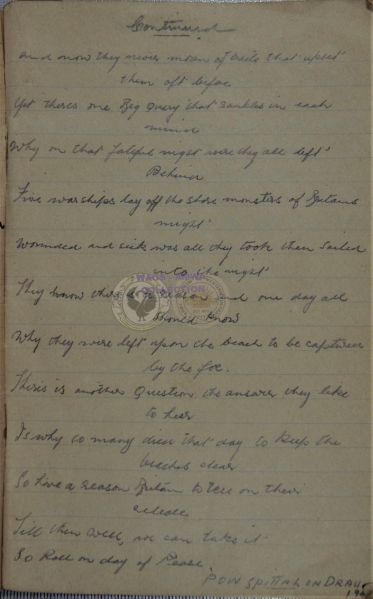 Continued
and now they never moan of baits that upset
them oft before
Yet theres one Big query that rankles in each
mind
Why on that fateful night were they all left
Behind
Five warships lay off the shore monsters of Britains
might
Wounded and sick was all they took then sailed
into the night
They know theres a reason and one day all
should know
Why they were left upon the beach to be captured
by the foe.
Theres is another Question the answer they like
to hear
Is why so many died that day to keep the
beaches clear
So have a reason Britain to tell on their
release
Till then well, we can take it
So Roll on day of Peace.
POW SPITTAL ON DRAU
194
WAOB COLLECTION